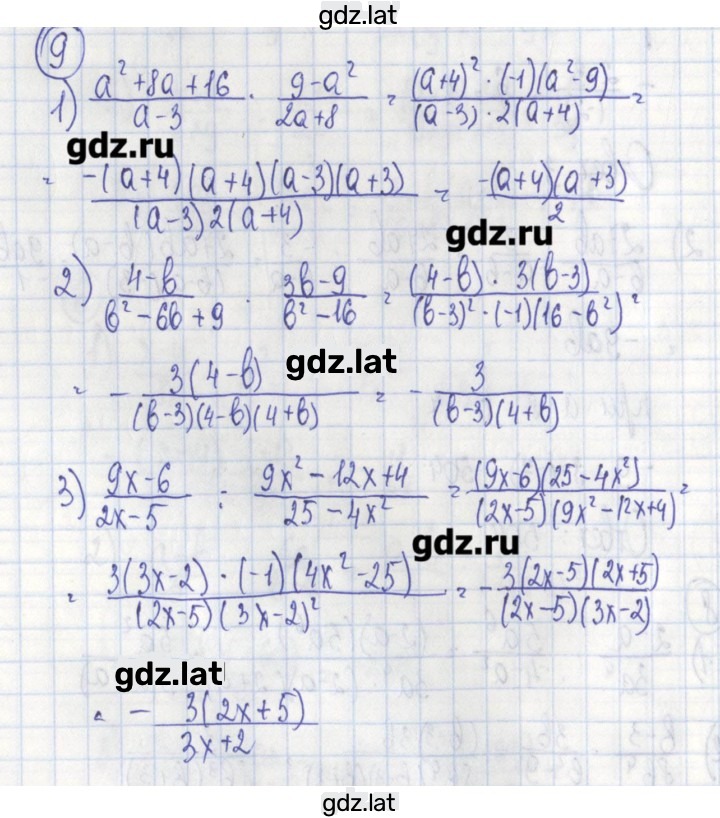 gdz.lat
9
1) (a² + 8a + 16)/(a - 3) · (9 - a²)/(2a + 8) = ((a+4)² · (-1)(a² - 9))/((a - 3) · 2(a+4)) =
gdz.ru
= (-(a+4)(a+4)(a-3)(a+3))/((a-3)2(a+4)) = (-(a+4)(a+3))/2
gdz.ru
2) (4-b)/(b² - 6b + 9) · (3b - 9)/(b² - 16) = ((4-b) · 3(b-3))/((b-3)² · (-1)(16 - b²)) =
gdz.lat
= - (3(4-b))/((b-3)(4-b)(4+b)) = - 3/((b-3)(4+b))
3) (9x-6)/(2x-5) : (9x² - 12x + 4)/(25 - 4x²) = ((9x-6)(25-4x²))/((2x-5)(9x² - 12x+4)) =
gdz.ru
= (3(3x-2) · (-1)(4x² - 25))/((2x-5)(3x-2)²) = - (3(2x-5)(2x+5))/((2x-5)(3x-2))
gdz.lat
= - (3(2x+5))/(3x+2)
gdz.lat